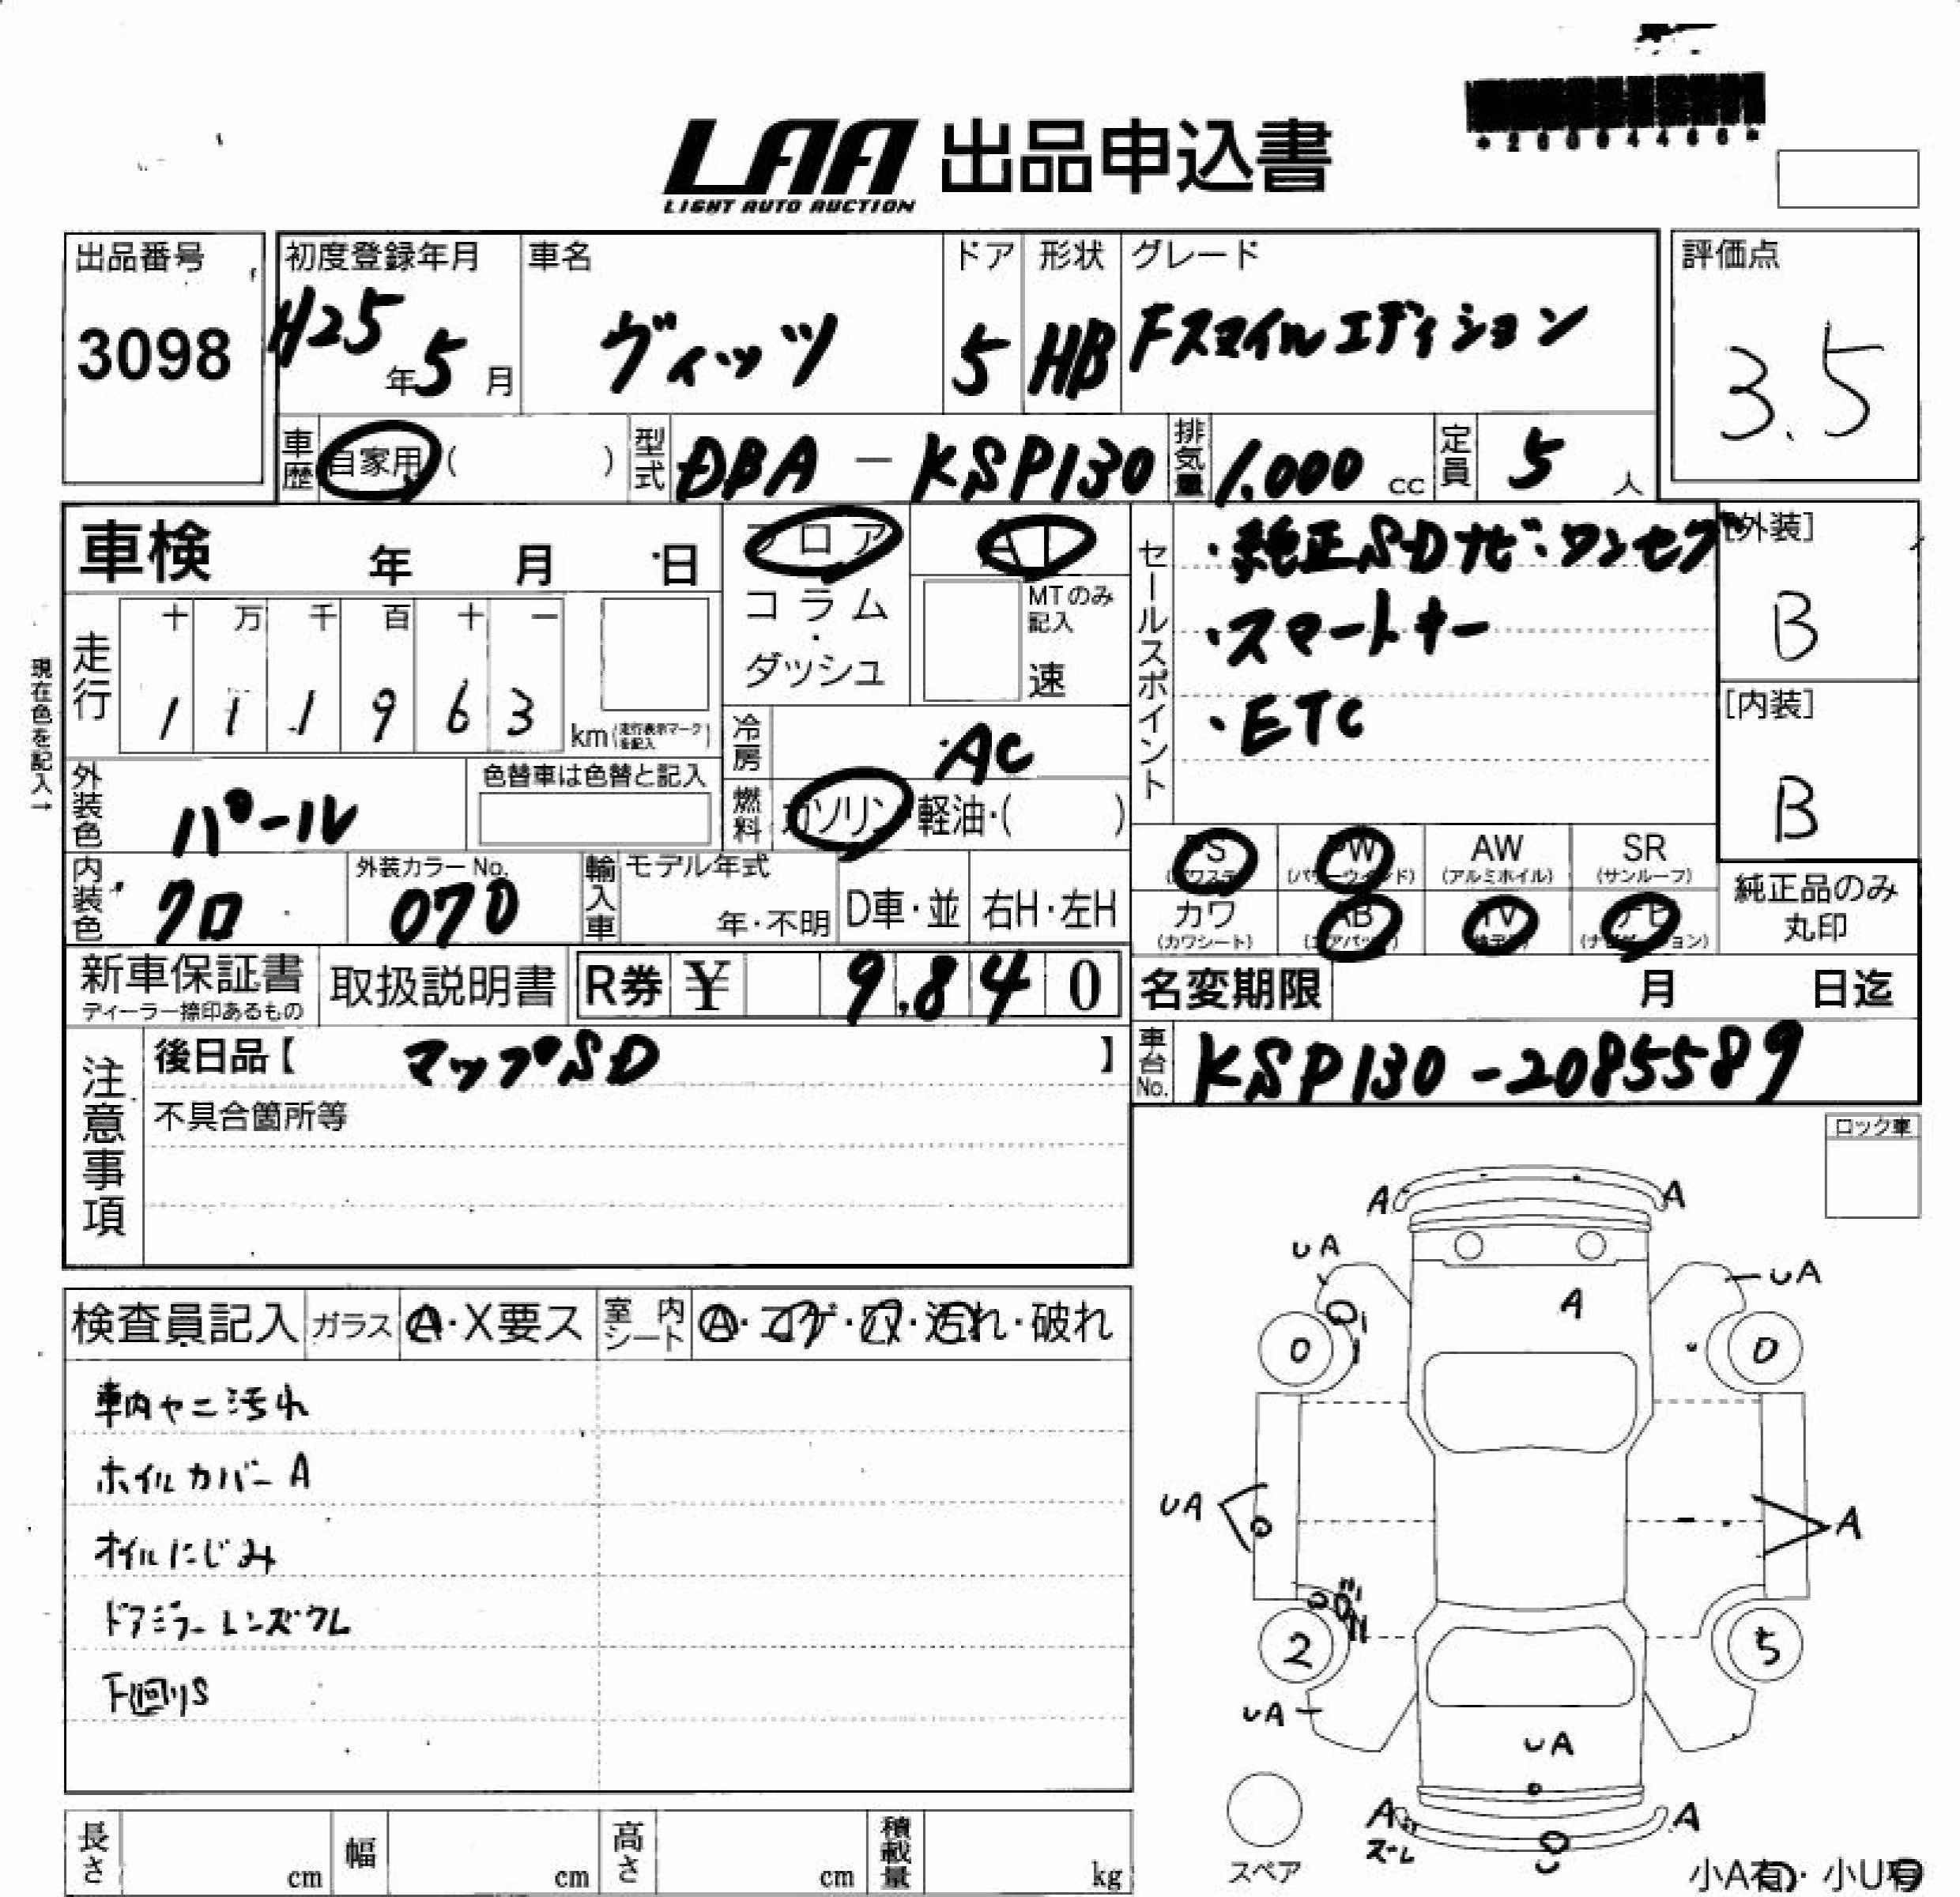 *2000446 0*
LAA 出品申込書
LIGHT AUTO AUCTION
出品番号
3098
初度登録年月
H25年5月
車名
ヴィッツ
ドア
5
形状
HB
グレード
Fスマイルエディション
評価点
3.5
車歴
自家用( )
型式
DBA-KSP130
排気量
1.000cc
定員
5人
車検 年 月 日
フロア
AT
コラム・ダッシュ
MTのみ記入
速
セールスポイント
・純正SDナビ・ワンセグ
・スマートキー
・ETC
[外装]
B
[内装]
B
現在色を記入→
走行
十 万 千 百 十 一
1 1 1 9 6 3
km(走行表示マークを記入)
冷房
AC
燃料
ガソリン・軽油・( )
外装色
パール
色替車は色替と記入
内装色
クロ
外装カラーNo.
070
輸入車
モデル年式
年・不明
D車・並
右H・左H
PS
(パワステ)
PW
(パワーウィンド)
AW
(アルミホイル)
SR
(サンルーフ)
カワ
(カワシート)
AB
(エアバッグ)
TV
ナビ
(ナビゲーション)
純正品のみ
丸印
新車保証書
ディーラー捺印あるもの
取扱説明書
R券 ¥ 9,840
名変期限 月 日迄
注意事項
後日品【 マップSD 】
不具合箇所等
車台No.
KSP130-2085589
ロック車
検査員記入
ガラス
A・X要ス
室内シート
A・コゲ・穴・汚れ・破れ
車内ヤニ汚れ
ホイルカバーA
オイルにじみ
ドアミラーレンズクレ
下回りS
A A
UA UA
A
0 0
UA A
2 5
UA
UA
A A
ズレ
スペア
小A有・小U有
長さ cm
幅 cm
高さ cm
積載量 kg